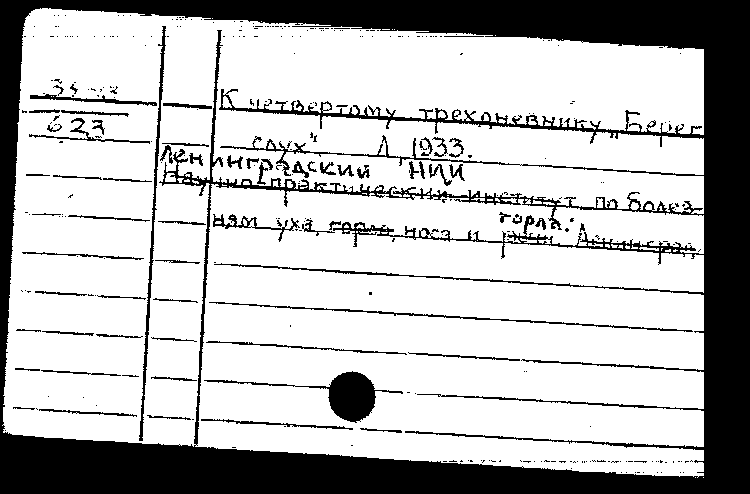 623
К четвертому трехдневнику „Берег
слух" Л, 1933.
Ленинградский НИИ
Научно-практический институт по болез-
горла.
ням уха, горла, носа и речи. Ленинград,